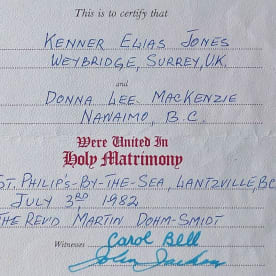 This is to certify that
KENNER ELIAS JONES
WEYBRIDGE, SURREY, UK.
and
DONNA LEE MACKENZIE
NANAIMO, B.C.
Were United In
Holy Matrimony
ST. PHILIP'S-BY-THE-SEA, LANTZVILLE, BC
JULY 3RD 1982
THE REV'D MARTIN DOHM-SMIDT
Witnesses Carol Bell
John